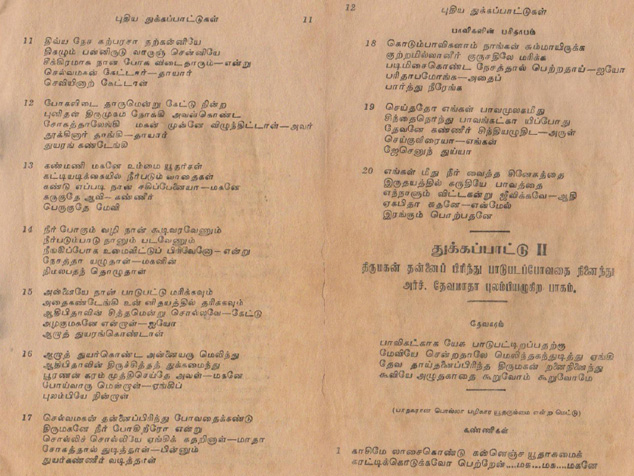 புதிய துக்கப்பாட்டுகள் 11
11 திவ்ய நேச கற்பரசா தற்கனியே
திகழும் பன்னிருடு வாருஞ் சென்னியே
சிக்கிரமாக நான் போக விடைதாரும்—என்று
செல்வமகன் கேட்டசுர்—தாயார்
செவியினுற் கேட்டான்
12 போகவிடை தாருமென்று கேட்டு நின்ற
புனிதன் திருமுகம நோக்கி அவன்கொண்ட
சோகத்தாலேங்கி மகன் முன்னே விழுந்திட்டாள்—அவர்
தூக்கினார் தாங்கி—தாயார்
துயரங் கண்டேங்கி
13 கண்மணி மகனே உம்மை யூதர்கள்
கட்டியடிக்கையில் நீர்படும் வாதைகள்
கண்டு எப்படி நான் சகிப்பேனையா—மகனே
கருகுதே ஆவி—கண்ணீர்
பெருகுதே மேவி
14 நீர் போகும் வழி நான் கூடிவரவேணும்
நீர்படும்பாடு நானும் படவேணும்
நீங்கிப்போக உமைவிட்டுப் பிரிவேனோ—என்று
நேசத்தா யழுதாள்—மகனின்
நிமலபதந் தொழுதாள்
15 அன்னையே நான் பாடுபட்டு மரிக்கவும்
அதைகண்டேங்கி உன் னிதயத்தில் தரிக்கவும்
ஆதிபிதாவின் சித்தமென்று சொல்லவே—கேட்டு
அழகுமகனே என்முள்—ஐயோ
ஆழத் துயரங்கொண்டாள்
16 ஆழத் துயர்கொண்ட அன்னையரு மெலிந்து
ஆதிபிதாவின் திருச்சித்தத் துக்கமைந்து
பூரணன் கரம் முத்திசெய்தே அவள்—மகனே
போய்வாரு மென்முள்—ஏங்கிப்
புலம்பியே நின்முள்
17 செல்வமகன் தன்னைப்பிரிந்து போவதைக்கண்டு
திருமகனே நீர் போகிறீரோ என்று
சொல்லிச் சொல்லியே ஏங்கிக் கதறினாள்—மாதா
சோகத்தால் துடித்தாள்—பின்னும்
துயர்கண்ணீர் வடித்தாள்
12 புதிய துக்கப்பாட்டுகள்
பாவிகளின் பரிதாபம்
18 கொடும்பாவிகளாம் நாங்கள் சும்மாயிருக்க
குற்றமில்லானீர் குருசதிலே மரிக்க
படிமிசைகொண்ட நேசத்தால் பெற்றதாய்—ஐயோ
பரிதாபமோங்க—அதைப்
பார்த்து நீரேங்க
19 செய்ததோ எங்கள் பாவமூலகமிது
சிந்தைநொந்து பாவங்கட்கா யிப்போது
தேவனே கண்ணீர் சிந்தியழுதிட—அருள்
செய்குவிரையா—எங்கள்
ஜேசெனுந் துய்யா
20 எங்கள் மீது நீர் வைத்த சினேகத்தை
இருதயத்தில் கருதியே பாவத்தை
எந்நாளும் விட்டகன்று ஜீவிக்கவே—ஆதி
ஏகபிதா சுதனே—என்மேல்
இரங்கும் பொற்பதனே
துக்கப்பாட்டு II
திருமகன் தன்னைப் பிரிந்து பாடுபடப்போவதை நினைந்து
அர்ச். தேவமாதா புலம்பியழுகிற பாகம்.
தேவாரம்
பாவிகட்காக யேசு பாடுபட்டிறப்பதற்கு
மேவியே சென்றதாலே மெலிந்தகந்துடித்து ஏங்கி
தேவ தாய்தனைப்பிரிந்த திருமகன் றனைநினைந்து
கூவியே அழுதகாதை கூறுவோம் கூறுவோமே
கண்ணிகள்
1 காதிமே லாசைகொண்டு கன்னெஞ்ச யூதாசுமைக்
காட்டிக்கொடுக்கவோ பெற்றேன்....மக...மக...மகனே